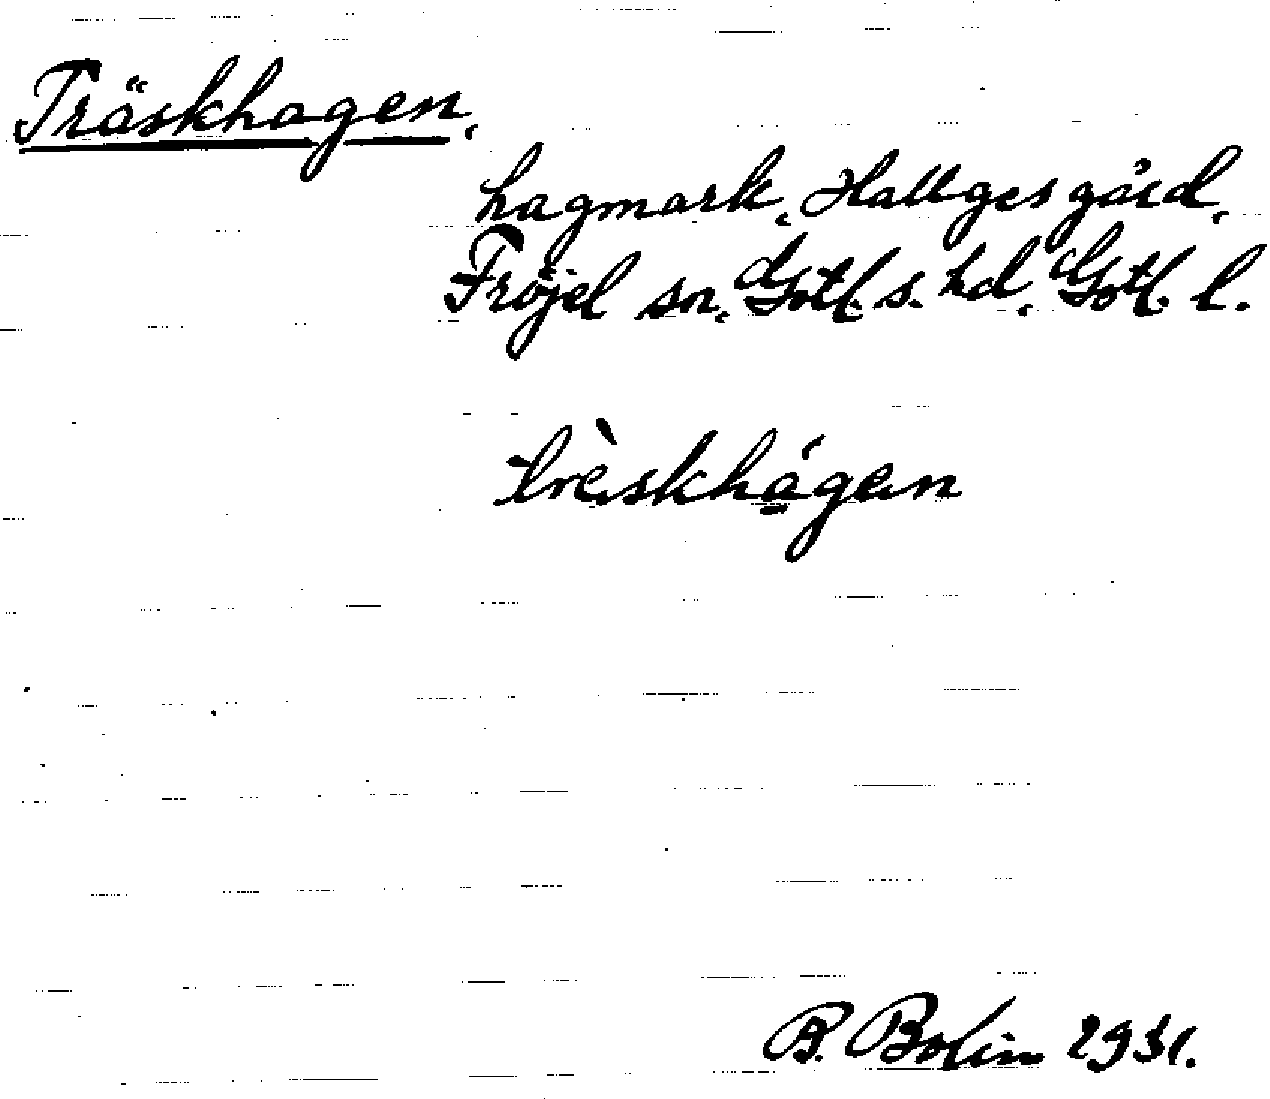 Träskhagen.
hagmark, Hallges gård,
Fröjel sn. Gotl. s. hd. Gotl. l.
trèskhágen
B. Bolin 1931.